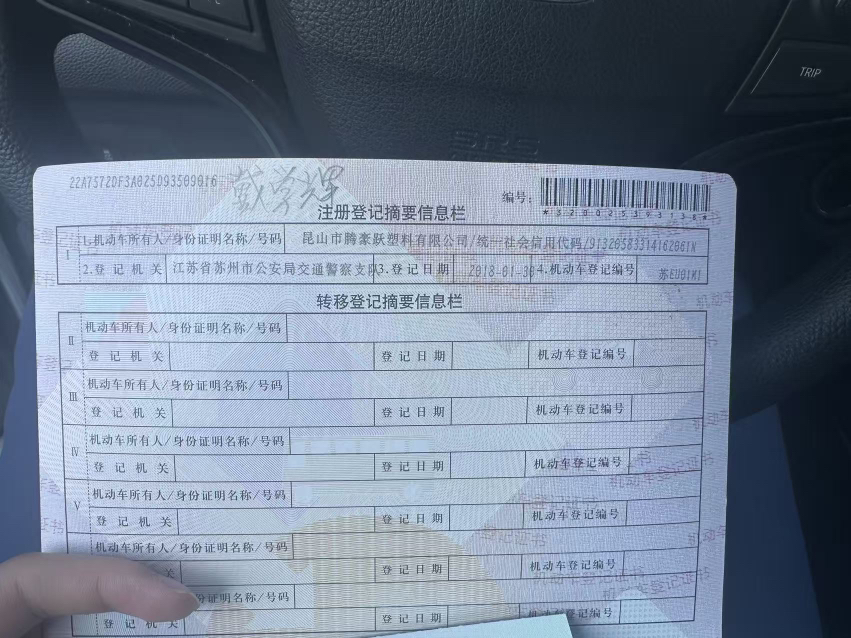 TRIP
SRS
22A7572DF3A025D93509016
戴学辉
编号:
*320025393138*
注册登记摘要信息栏
I 1.机动车所有人/身份证明名称/号码 昆山市腾豪跃塑料有限公司/统一社会信用代码/91320583314162061N
2.登记机关 江苏省苏州市公安局交通警察支队 3.登记日期 2018-01-30 4.机动车登记编号 苏EU01M1
转移登记摘要信息栏
II 机动车所有人/身份证明名称/号码
登记机关 登记日期 机动车登记编号
III 机动车所有人/身份证明名称/号码
登记机关 登记日期 机动车登记编号
IV 机动车所有人/身份证明名称/号码
登记机关 登记日期 机动车登记编号
V 机动车所有人/身份证明名称/号码
登记机关 登记日期 机动车登记编号
机动车所有人/身份证明名称/号码
关 登记日期 机动车登记编号
份证明名称/号码
登记机关 登记日期 机动车登记编号